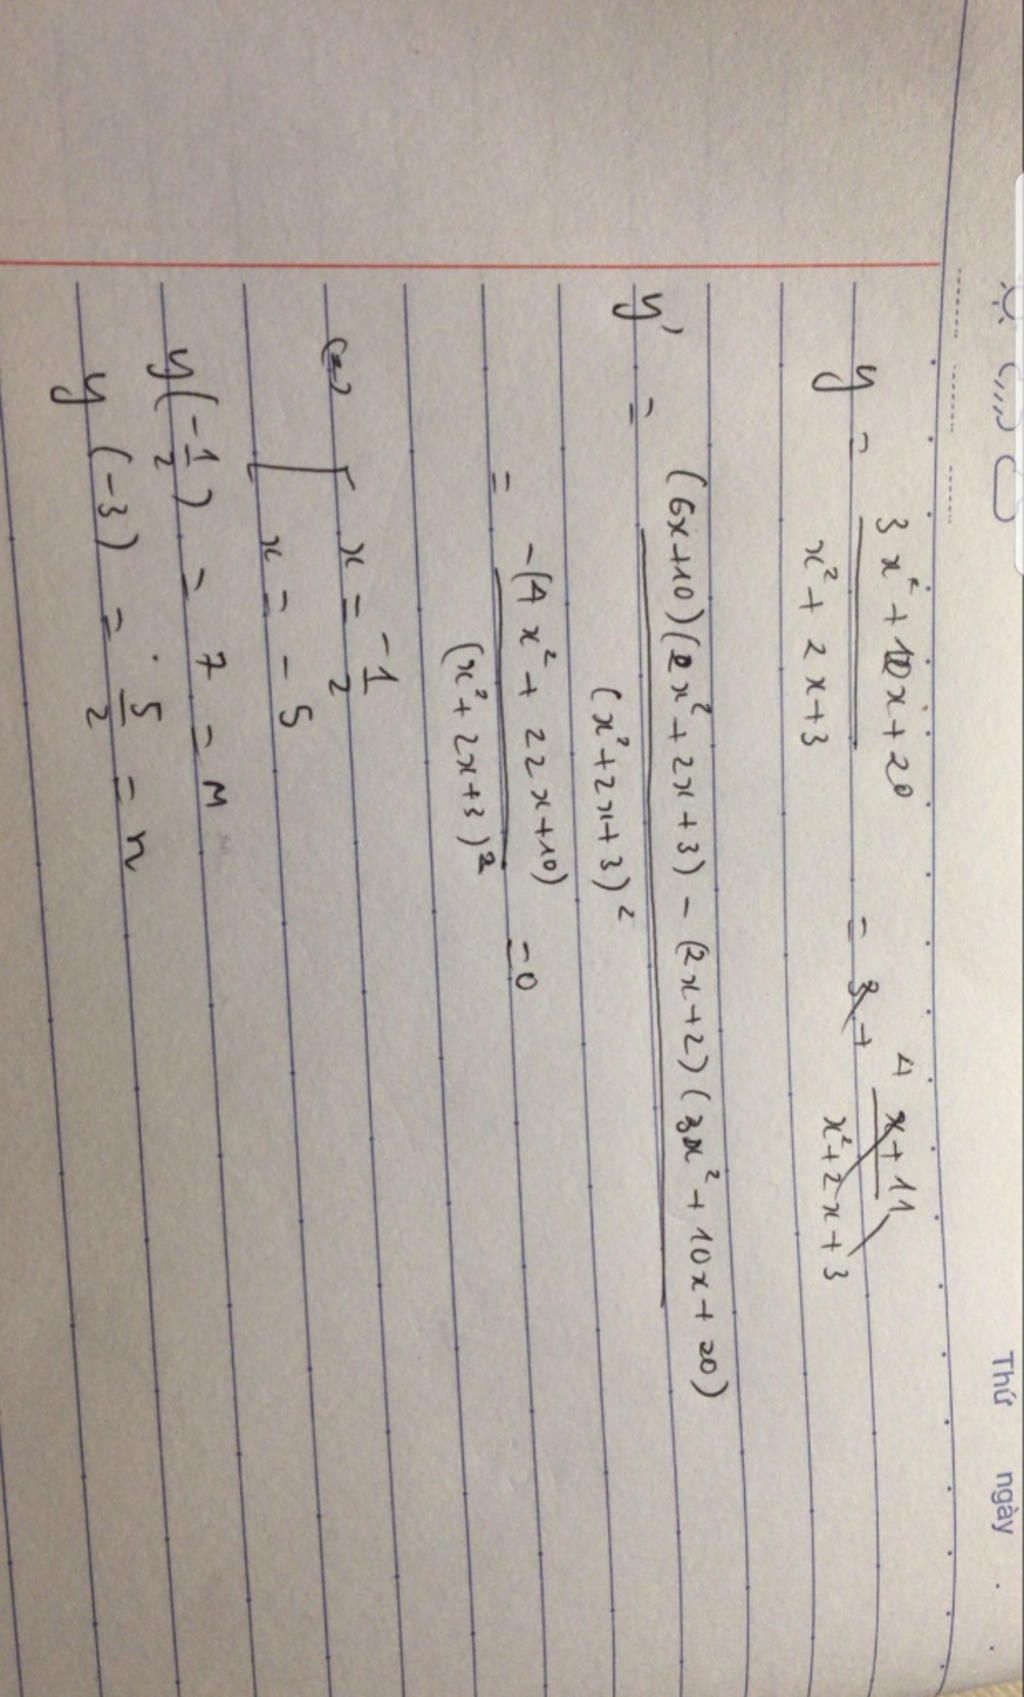 Thứ ngày
y = 3x² + 10x + 20 / x² + 2x + 3 = 3 + 4x + 11 / x² + 2x + 3
y' = (6x+10)(x² + 2x + 3) - (2x+2)(3x² + 10x + 20) / (x² + 2x + 3)²
= -(4x² + 22x + 10) / (x² + 2x + 3)² = 0
(=) x = -1/2
x = -5
y(-1/2) = 7 = M
y(-3) = 5/2 = n